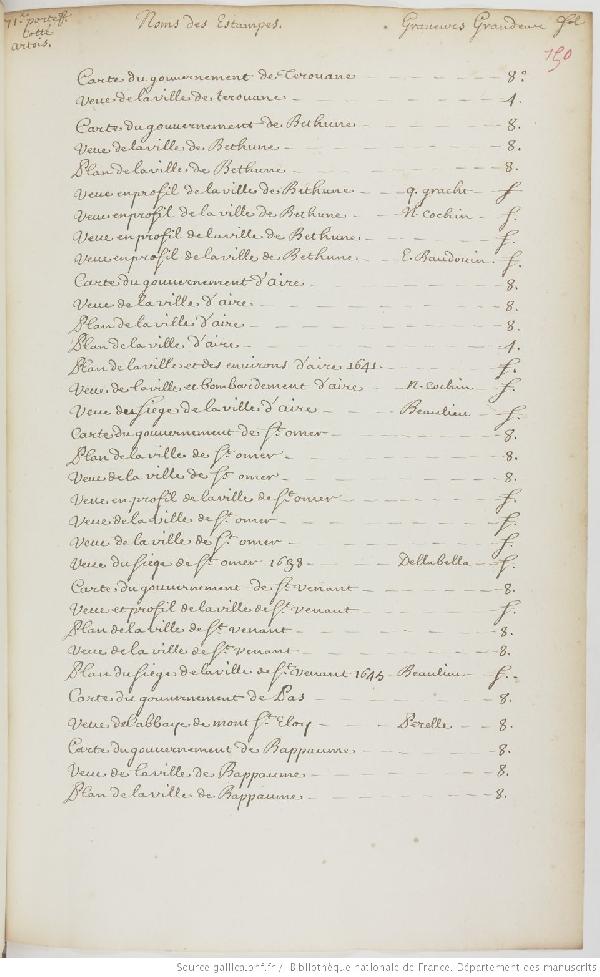 71e. portef. Noms des Estampes. Graveurs Grandeur fol
Cotté
artois. 150
Carte du gouvernement de Terouane 8.o
Veue de la ville de terouane 4.
Carte du gouvernement de Bethune 8.
Veue de la ville de Bethune 8.
Plan de la ville de Bethune 8.
Veue en profil de la ville de Bethune q. gracht f.
Veue en profil de la ville de Bethune N. Cochin f.
Veue en profil de la ville de Bethune f.
Veue en profil de la ville de Bethune E. Baudouin f.
Carte du gouvernement d'aire 8.
Veue de la ville d'aire 8.
Plan de la ville d'aire 8.
Plan de la ville d'aire 4.
Plan de la ville et des environs d'aire 1641. f.
Veue de la ville et bombardement d'aire n. cochin f.
Veue du siege de la ville d'aire Beaulieu f.
Carte du gouvernement de St. omer 8.
Plan de la ville de St. omer 8.
Veue de la ville de St. omer 8.
Veue en profil de la ville de St. omer f.
Veue de la ville de St. omer f.
Veue de la ville de St. omer f.
Veue du siege de St. omer 1638 Dellabella f.
Carte du gouvernement de St. venant 8.
Veue et profil de la ville de St. venant f.
Plan de la ville de St. venant 8.
Veue de la ville de St. venant 8.
Plan du siege de la ville de St. venant 1645 Beaulieu f.
Carte du gouvernement de Pas 8.
Veue de l'abbaye de mont St. Eloy Perelle 8.
Carte du gouvernement de Bappaume 8.
Veue de la ville de Bappaume 8.
Plan de la ville de Bappaume 8.
Source gallica.bnf.fr / Bibliothèque nationale de France. Département des manuscrits